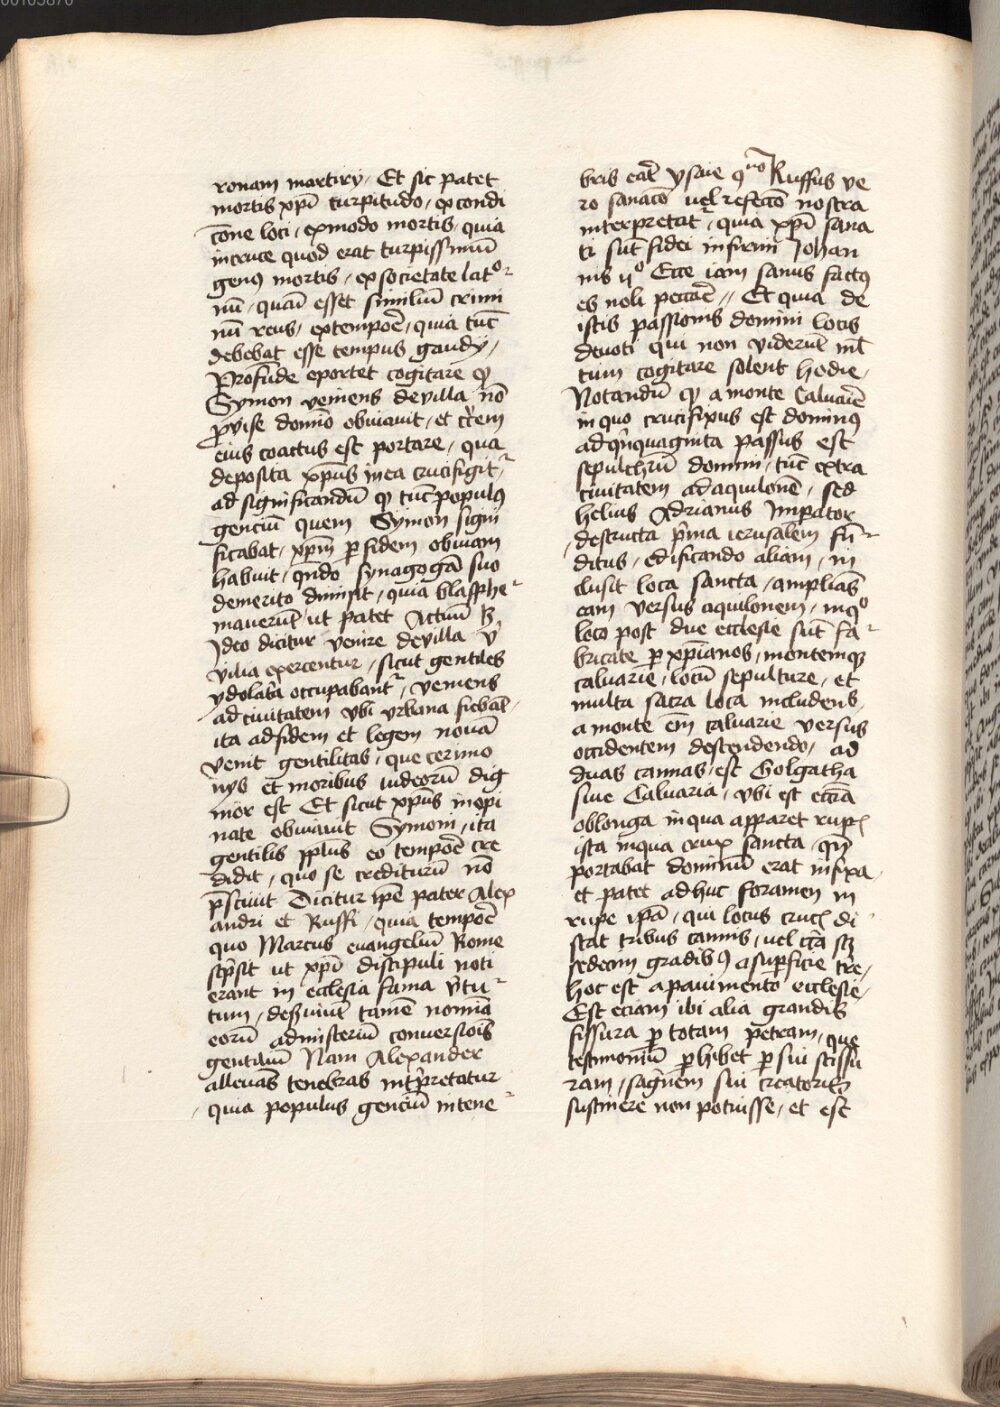 00103870
ronam martirij / Et sic patet
mortis xpī turpitudo / ex condi
cōne loci / ex modo mortis / quia
in cruce quod erat turpissimū
genꝰ mortis / ex societate latº
nū / quasi esset similiū crimi
nū reus / ex tempoē / quia tūc
debebat esse tempus gaudij /
Profūde oportet cogitare ꝙ
Symon veniens de villa nō
ꝓvise domīo obviauit / et cr̄cem
eius coactus est portare / qua
deposita xpūs in ea crucifigit᷑ /
ad significandū ꝙ tūc populꝰ
genciū quem Symon signi
ficabat / xpm̄ ꝑ fidem obuiam
habuit / qn̄do synagogā suo
demerito dimisit / quia blasphe
mauerūt / ut patet Actuū 13
Ideo dicitur venire de villa v̓
vilia exercentur / sicut gentiles
ydolat̓a occupabant᷑ / veniens
ad ciuitatem vbi vrbana fiebāt /
ita ad fidem et legem nouā
venit gentilitas / que cerimo
nijs et moribus iudeorū dig
nior est Et sicut xpūs inopi
nate obuiauit Symoni / ita
gentilis pp̄lus eo tempoē cre
didit / quo se crediturū nō
p̄sciuit Dicitur ip̄e pater Alex
andri et Ruffi / quia tempoē
quo Marcus euangeliū Rome
scp̄sit ut xpī discipuli noti
erant in ecclesia fama v̓tu
tum / deseruiūt tamē nomīa
eorū ad misteriū conuersiōis
gentium Nam Alexander
alleuās tenebras int̓pretatur
quia populus genciū in tene
bris eāt ysaie 9ⁿᵒ Ruffus ve
ro sanacō uel refeccō nostra
interpretat᷑ / quia xpī sana
ti sūt fidei infirmi Johan
nis vº Ecce iam sanus factꝰ
es noli peccaē // Et quia de
istis passionis domini locis
deuoti qui non viderūt ml̄
tum cogitare solent hodie /
Notandū ꝙ a monte Caluaīe
in quo crucifixus est dominꝰ
ad qⁱnquaginta passus est
sepulchrū domini / tūc extra
ciuitatem ad aquilonē / sed
helius Adrianus Imꝑator
destructa pⁱma ierusalem fū
ditus / edificando aliam / in
clusit loca sancta / amplians
eam versus aquilonem / in qº
loco post due ecclesie sūt fa
bricate ꝑ xpīanos / montemqꝫ
caluarie / locū sepulture / et
multa sacra loca includens
a monte em̄ caluarie versus
occidentem descendendo / ad
duas cannas / est Golgatha
siue Caluaria / vbi est eccīa
oblonga in qua apparet rupes
ista in qua crux sancta / qn̄
portabat dominū erat infixa
et patet ad huc foramen in
rupe ipa̅ / qui locus crucis di
stat tribus cannis / uel cīca scꝫ
sedecim gradibꝰ a suꝑficie t̓re /
hoc est a pauimento ecclesie /
Est eciam ibi alia grandis
fissura ꝑ totam petram / que
testimoniū ꝑhibet ꝑ sui scissu
ram / sāgⁱnem sui creatoris
sustinere non potuisse / et est